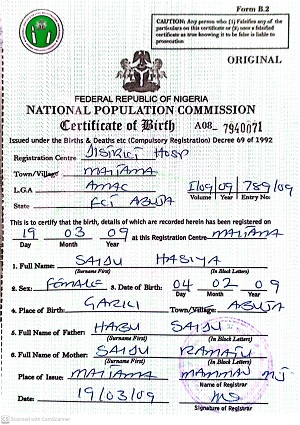 Form B.2
CAUTION: Any person who (1) Falsifies any of the particulars on this certificate or (2) uses a falsified certificate as true knowing it to be false is liable to prosecution
ORIGINAL
FEDERAL REPUBLIC OF NIGERIA
NATIONAL POPULATION COMMISSION
Certificate of Birth A08_ 7940071
Issued under the Births & Deaths etc (Compulsory Registration) Decree 69 of 1992
Registration Centre DISTRICT HOSP
Town/Village MAITAMA
L.G.A AMAC
State FCT ABUJA
Volume Year Entry No: 09 789/09
This is to certify that the birth, details of which are recorded herein has been registered on
19 03 09 at this Registration Centre MAITAMA
Day Month Year
1. Full Name: SAIDU HABIYA
(Surname First) (In Block Letters)
2. Sex: FEMALE 3. Date of Birth: 04 02 09
Day Month Year
4. Place of Birth: GARKI Town/Village: ABUJA
5. Full Name of Father: HABU SAIDU
(Surname First) (In Block Letters)
6. Full Name of Mother: SAIDU RAMATU
(Surname First) (In Block Letters)
Place of Issue: MAITAMA MAMMAN
Name of Registrar
Date: 19/03/09
Signature of Registrar
CS Scanned with CamScanner